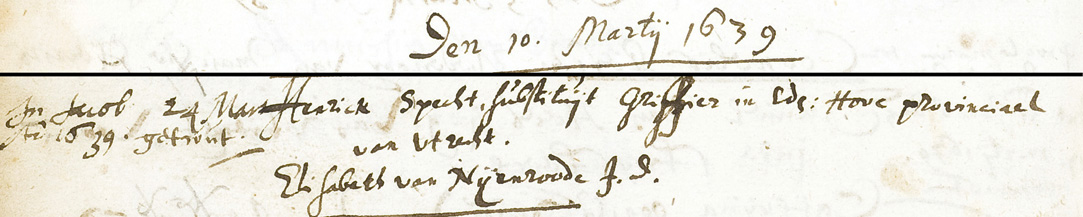 Den 10. Martij 1639
In Jacob 24 Mar Henrick Specht, substituijt Griffier in Ede: Hove provinciael
1639. getrout. van Utrecht.
Elisabeth van Nijenroode J. D.